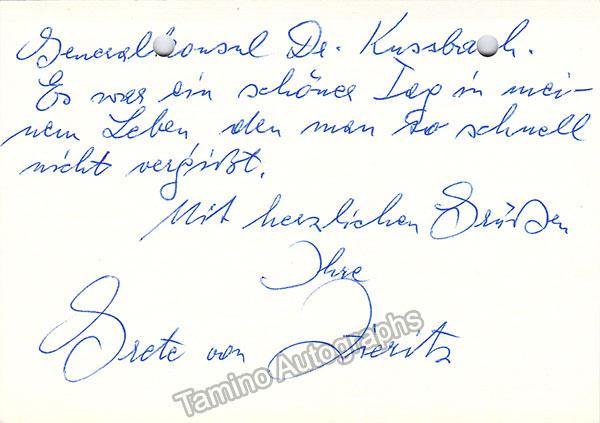 Generalkonsul Dr. Kussbach.
Es war ein schöner Tag in mei-
nem Leben den man so schnell
nicht vergißt.
Mit herzlichen Grüßen
Ihre
Grete von Zieritz
Tamino Autographs